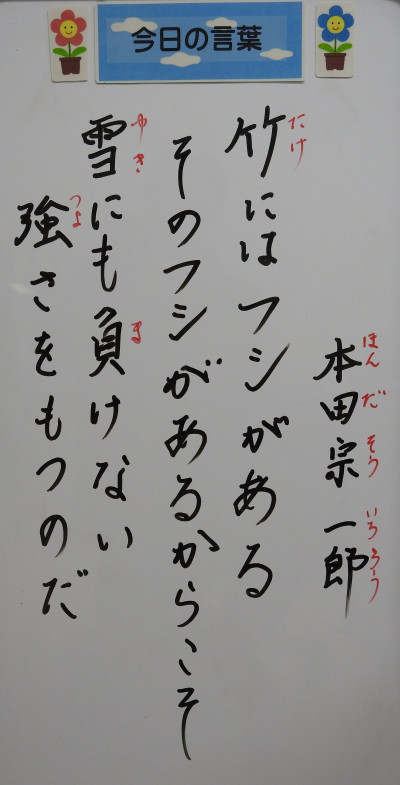 今日の言葉
本田宗一郎
ほんだそういちろう
竹にはフシがある
たけ
そのフシがあるからこそ
雪にも負けない
ゆき
ま
強さをもつのだ
つよ